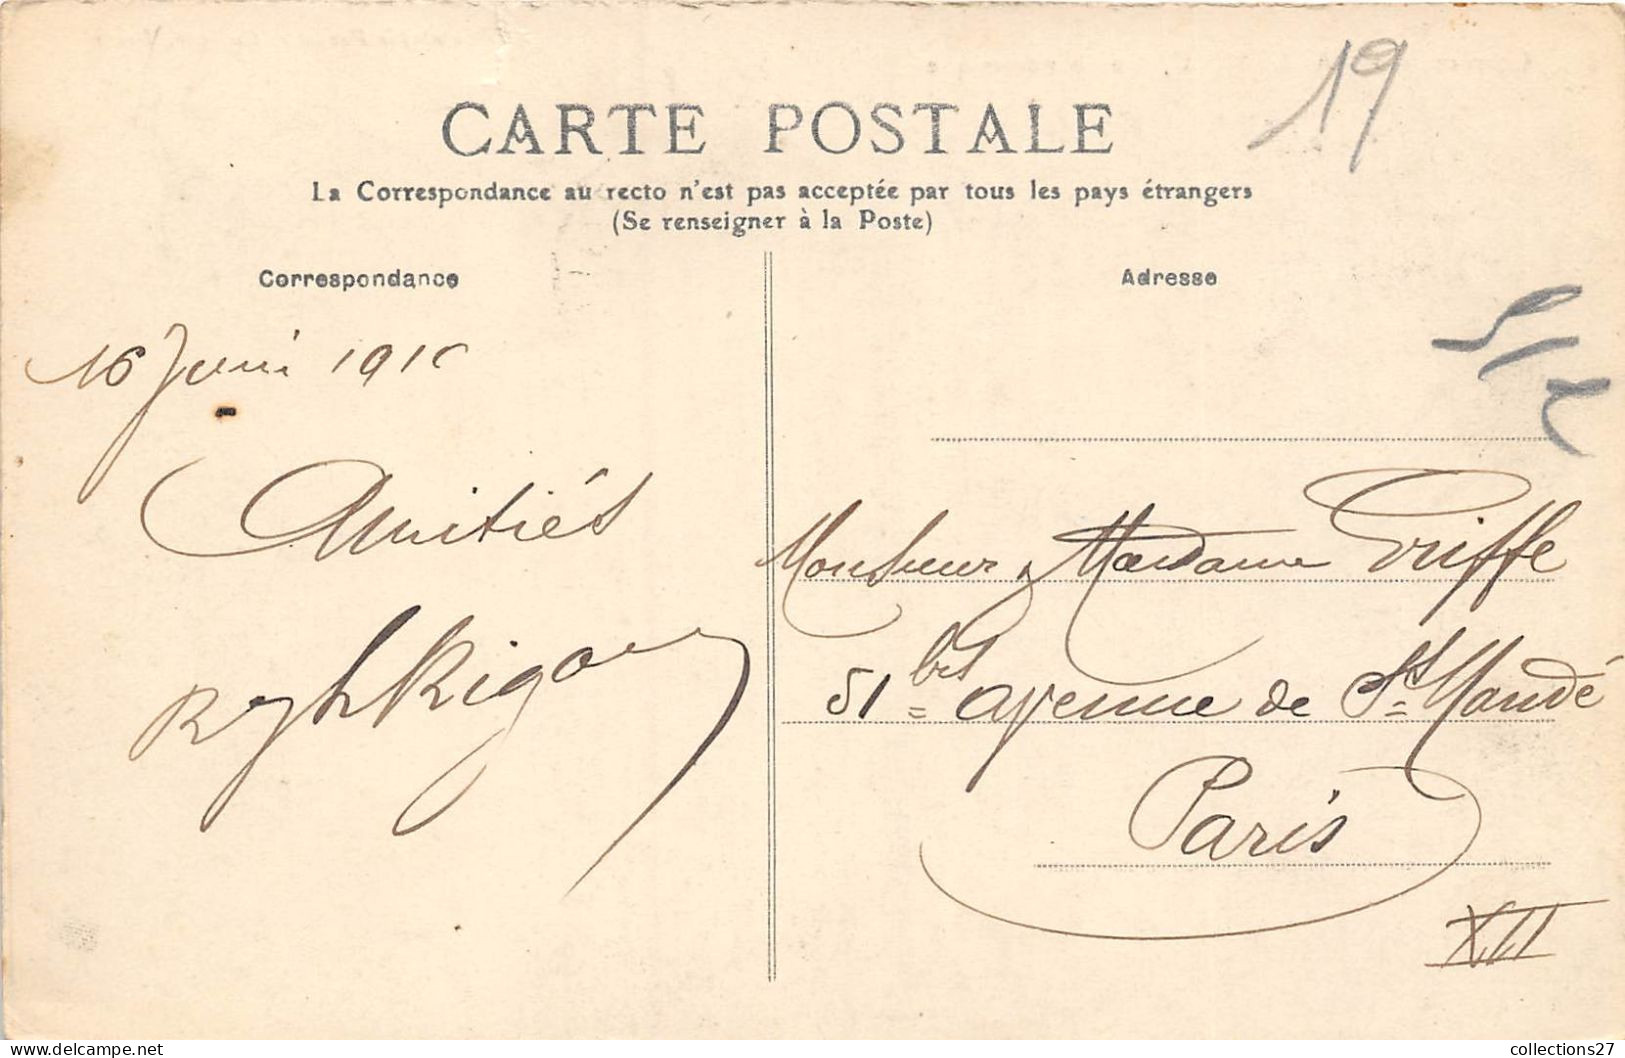 CARTE POSTALE
19
La Correspondance au recto n'est pas acceptée par tous les pays étrangers
(Se renseigner à la Poste)
Correspondance
16 Juin 191
Amitiés
Adresse
Monsieur Madame Griffe
51 bis avenue de St Mandé
Paris
XII
collections27